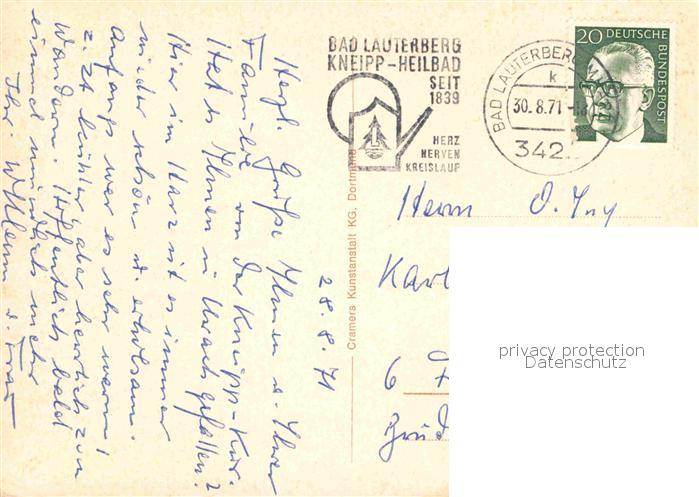 BAD LAUTERBERG
KNEIPP-HEILBAD
SEIT
1839
HERZ
NERVEN
KREISLAUF
BAD LAUTERBERG
k
30.8.71-18
342
20 DEUTSCHE
BUNDESPOST
28.8.71
Herzl. Grüße Ihnen u. Ihrer
Familie von der Kneipp-Kur.
Hat es Ihnen in Urach gefallen?
Hier im Harz ist es immer
wieder schön u. erholsam.
Anfangs war es sehr warm!
z. Zt. kühler aber herrlich zum
Wandern. Hoffentlich bald
einmal mündlich mehr
Ihr u. Frau
Cramers Kunstanstalt KG, Dortmund
Herrn O. Ing
Karl
6 F
Brüd
privacy protection
Datenschutz